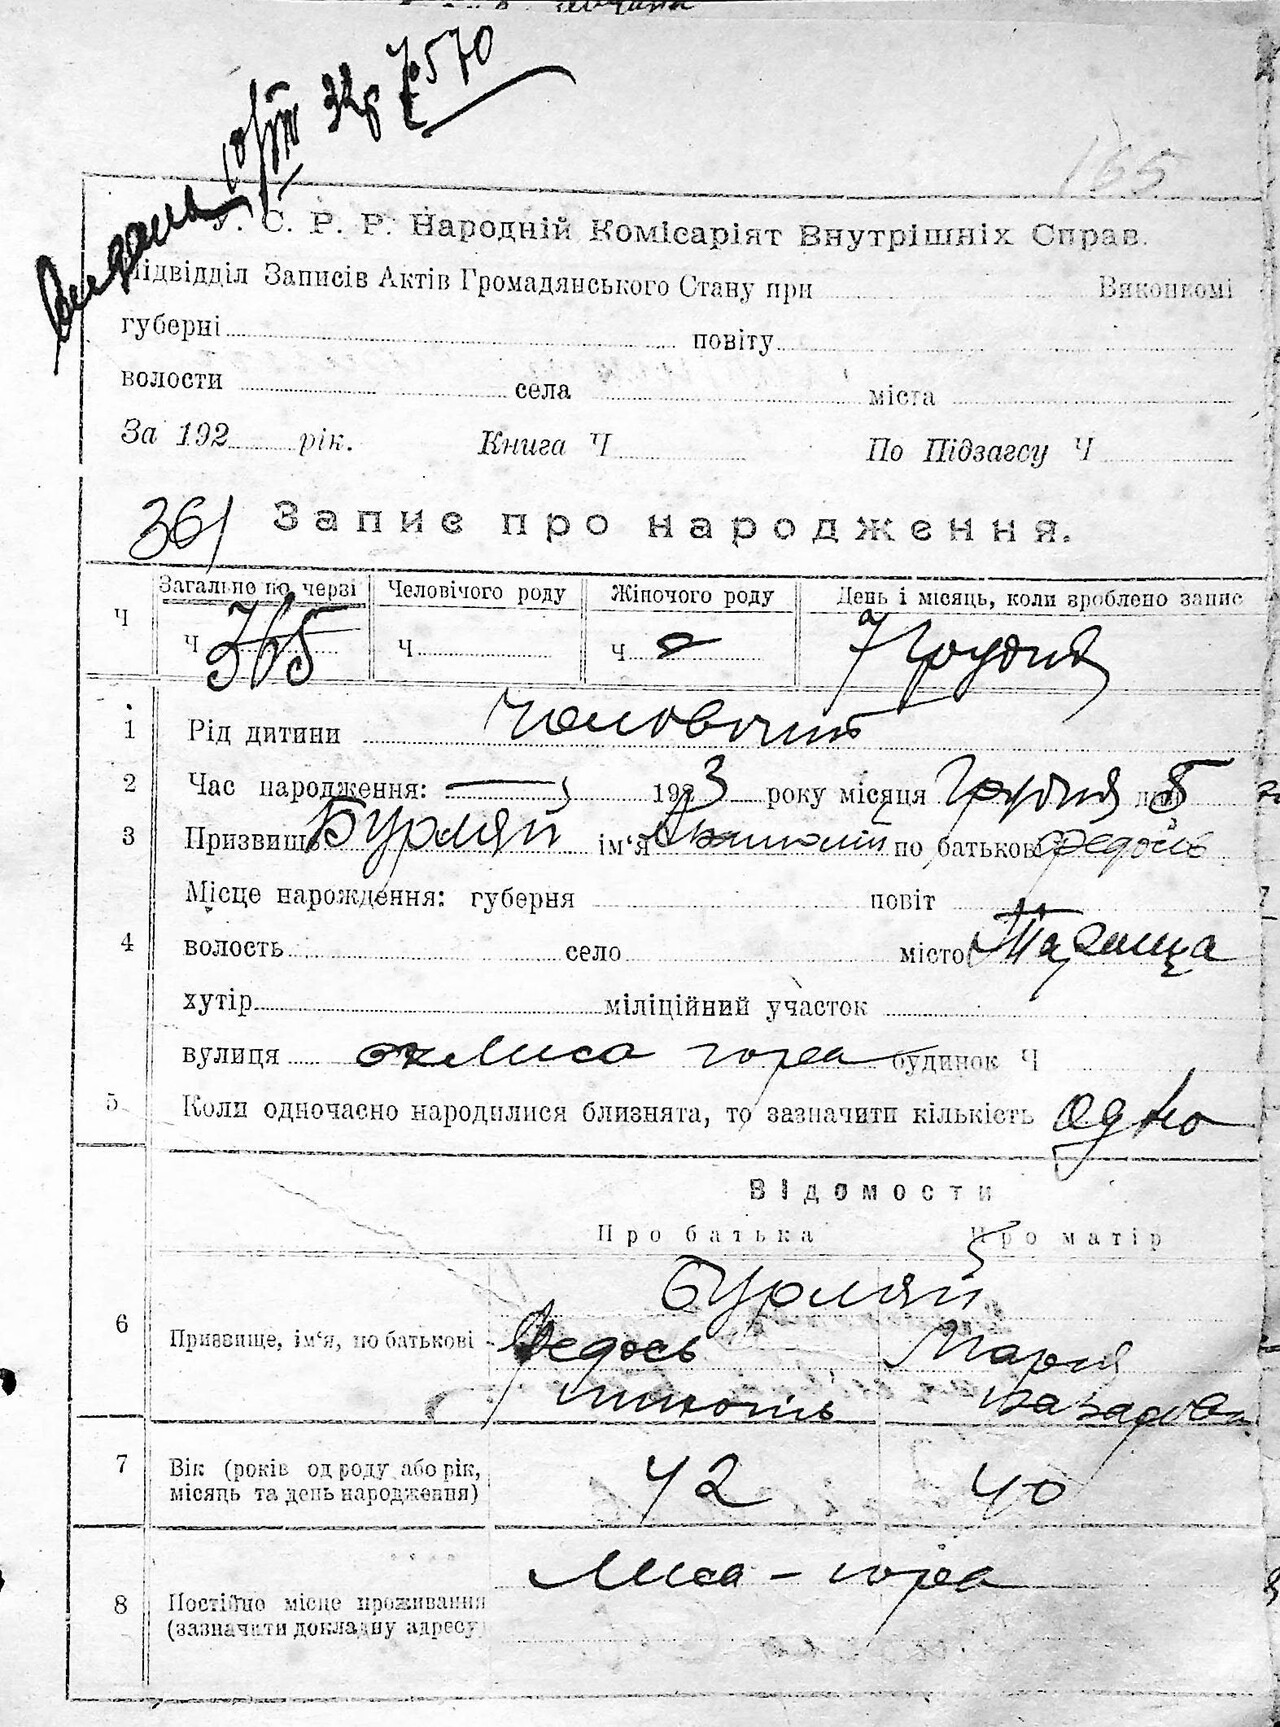 165
У. С. Р. Р. Народній Комісаріят Внутрішніх Справ.
Підвідділ Записів Актів Громадянського Стану при Виконкомі
губерні повіту
волости села міста
За 192 рік. Книга Ч По Підзагсу Ч
361 Запис про народження.
Ч Загальне по черзі Человічого роду Жіночого роду День і місяць, коли зроблено запис
Ч 365 Ч Ч 7 Грудня
1 Рід дитини чоловичий
2 Час народження: 1923 року місяця Грудня дня 5
3 Призвище Бурляй ім'я по батькові Федось
Місце нарождення: губерня повіт
4 волость село місто Тараща
хутір міліційний участок
вулиця Лиса гора будинок Ч
5 Коли одночасно народилися близнята, то зазначити кількість одно
Відомости
Про батька Про матір
Бурляй
6 Призвище, ім'я, по батькові Федось Мария
Назарова
7 Вік (років од роду або рік, місяць та день народження) 42 40
8 Постійно місце проживання (зазначити докладну адресу) Лиса - гора